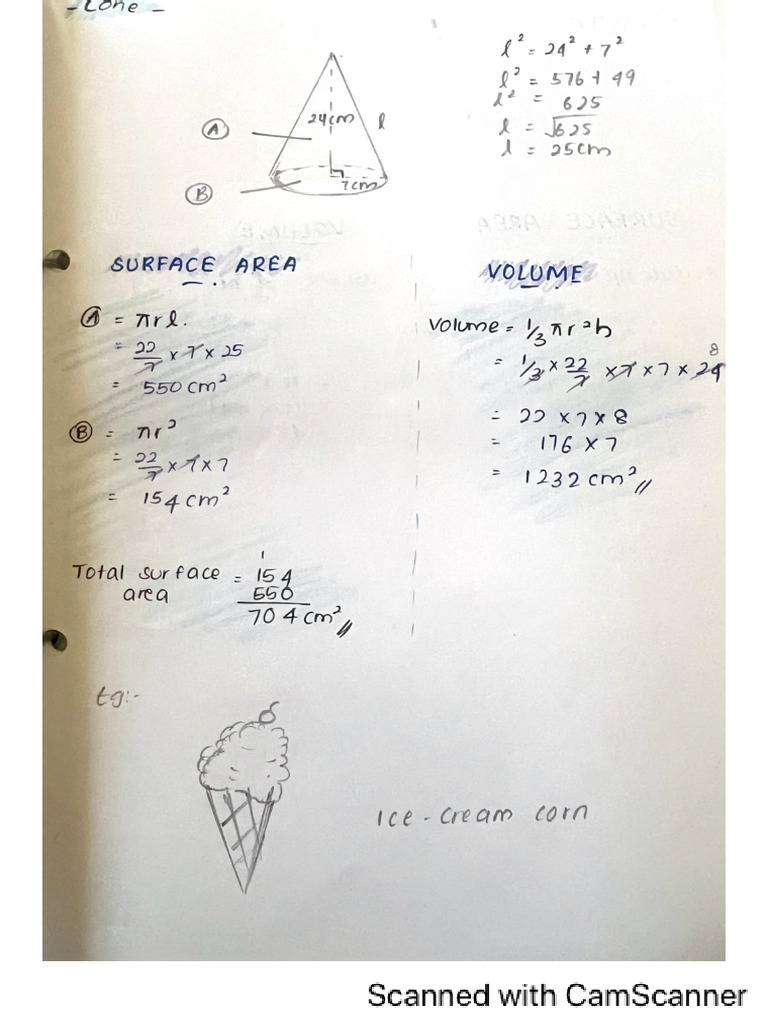 - Cone -
l² = 24² + 7²
l² = 576 + 49
l² = 625
l = √625
l = 25cm
24cm
l
A
7cm
B
SURFACE AREA
A = πrl.
= 22/7 × 7 × 25
= 550 cm²
B = πr²
= 22/7 × 7 × 7
= 154 cm²
Total surface area = 154
550
704 cm²
VOLUME
Volume = 1/3 πr²h
= 1/3 × 22/7 × 7 × 7 × 24 8
= 22 × 7 × 8
= 176 × 7
= 1232 cm³
Eg:-
Ice-cream corn
Scanned with CamScanner